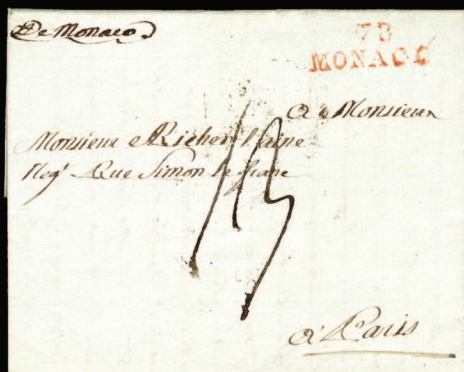 De Monaco
78
MONACO
A Monsieur
Monsieur Richer l'aine
Neg.t Rue Simon le franc
13
a Paris